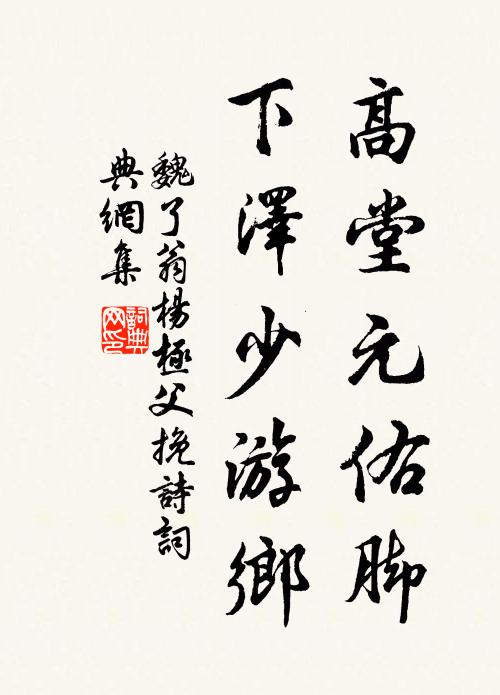 高堂元佑脚
下澤少游鄉
魏了翁楊極父挽詩詞
典網集
詞典
网印